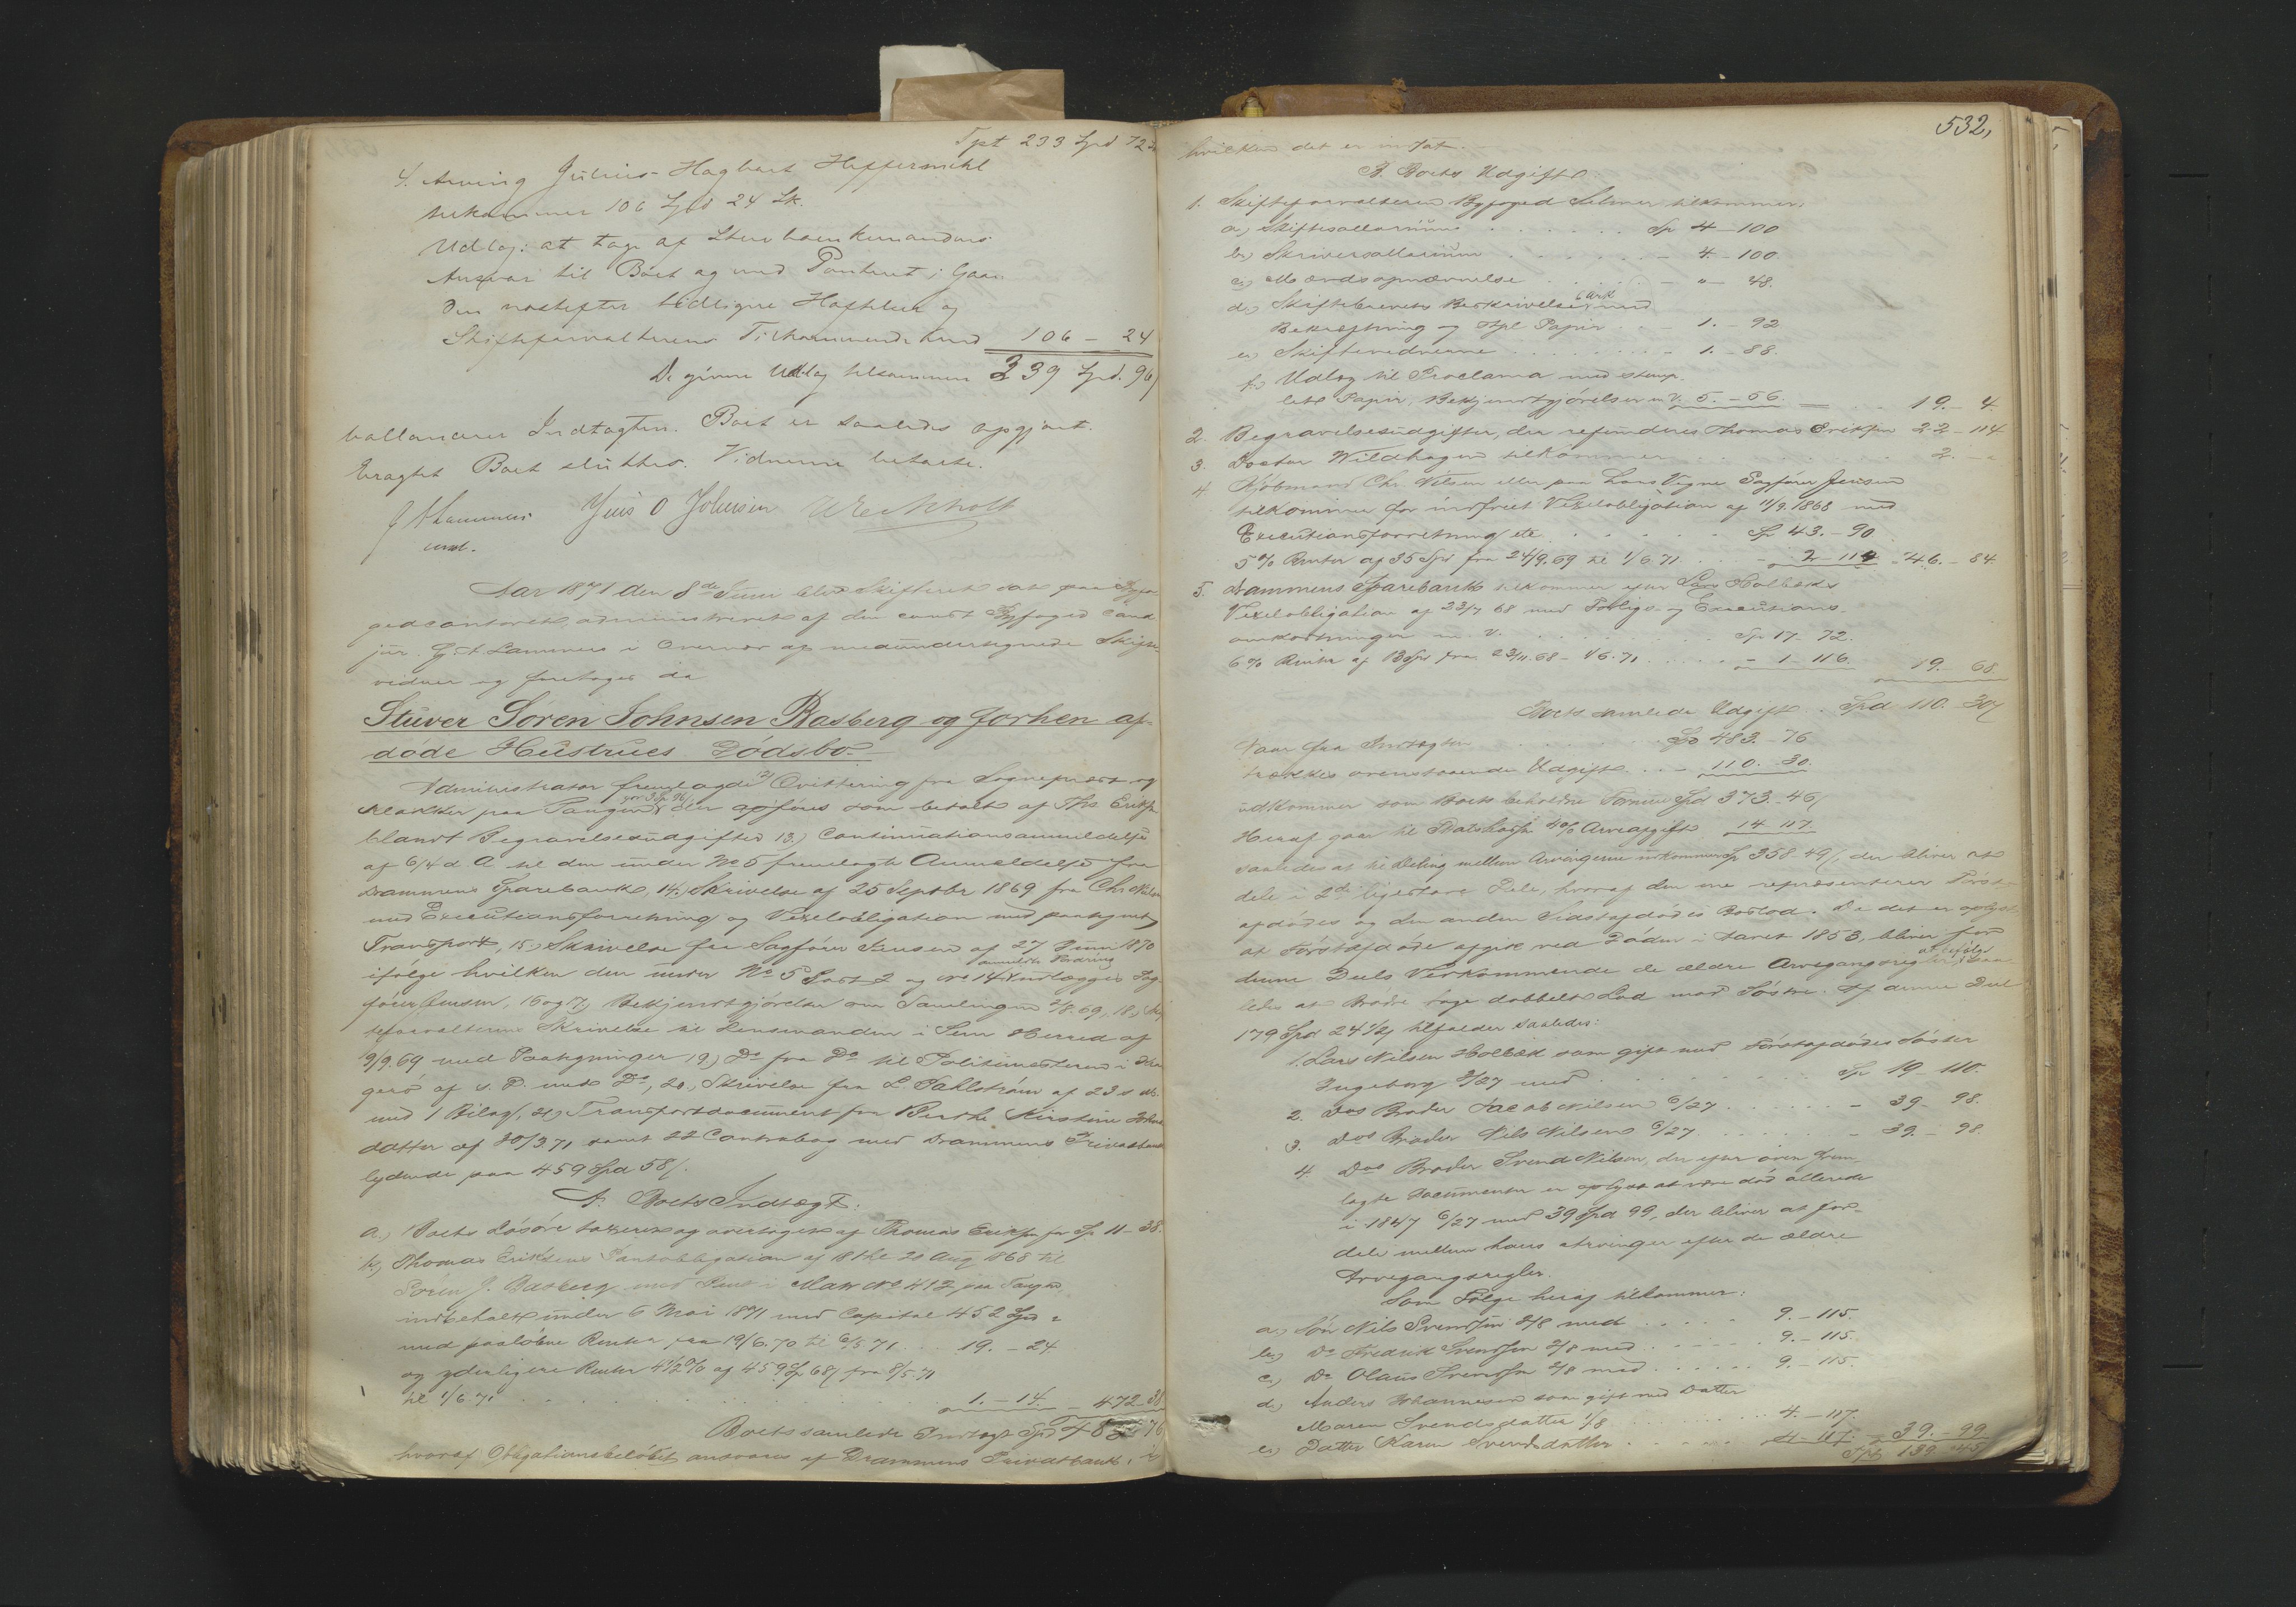 Tpt 233 Spd 72
4. Arving Julius Hagbart Heffermehl
tilkommer 106 Spd 24 Sk.
Udlæg: at tage af
Ansvar til Boet og med Panteret i Gaar-
den næstefter tidligere Heftelser og
Skifteforvalterens Tilkommende med 106 – 24
De givne Udlæg tilsammen 339 Spd. 96
ballancerer Indtægten. Boet er saaledes opgjort.
Eragtet Boet sluttes. Vidnerne betalte.
G A Lammers Jens O Johnsen
const.
Aar 1871 den 8de Juni blev Skifteret sat paa Byfo-
gedcontoret, administreret af den const Byfoged Cand
jur. G. A. Lammers i Overvær af medundertegnede Skifte-
vidner og foretoges da
Stuver Sören Johnsen Basberg og forhen af-
döde Hustrues Dödsbo.
Administrator fremlagde 12) Qvittering fra Sogneprest og
Klokker paa Tangen for 3 Sp 96 der opföres som betalt af Ths Eriksen
blandt Begravelsesudgifter 13.) Continuationsanmeldelse
af 6/4 d. A til den under No 5 fremlagte Anmeldelse fra
Drammens Sparebank, 14.) Skrivelse af 25 Septbr 1869 fra Chr Nilsen
med Executionsforretning og Vexelobligation med paategnet
Transport, 15.) Skrivelse fra Sagförer Jensen af 27 Juni 1870
ifölge hvilken den under No 5 Post 2 og No 14 anmeldte Fordring indlægges Sag-
förer Jensen, 16 og 17) Bekjendtgjörelse om Samlingen 2/8.69, 18.) Skif-
teforvalterens Skrivelse til Lensmanden i Sem Herred af
9/9.69 med Paategninger 19.) Do fra Do til Politimesteren i Kra-
gerö af s. D. med Do, 20., Skrivelse fra L. Dahlström af 23 s M.
med 1 Bilag, 21) Transportdocument fra Berthe Kirstine Johns-
datter af 30/3.71 samt 22 Contrabog med Drammens Privatbank
lydende paa 459 Spd 58/.
A. Boets Indtægt:
a.) Boets Lösöre takseret og overtaget af Thomas Eriksen for Sp 11 – 38.
b.) Thomas Eriksens Pantobligation af 18 thl 20 Aug 1868 til
Sören J. Basberg med Pant i Matr No 412 paa Tangen
indbetalt under 6 Mai 1871 med Capital 452 Spd "
med paalöbne Renter fra 19/6.70 til 6/5 71 . . 19. – 24
og yderligere Renter 4 1/2 % af 459 Sp 68/ fra 8/5.71
til 1/6 71 . . . . 1. – 14. – 472 38
Boets samlede Indtægt Spd 483 76
hvoraf Obligationsbelöbet ansvares af Drammens Privatbank, i
532,
hvilken det er indsat.
B. Boets Udgift:
1. Skifteforvalteren Byfoged Selmer tilkommer:
a.) Skiftesallarium . . . . Sp 4 – 100
b.) Skriversallarium . . . . – 4. – 100.
c.) Mændsopnævnelse . . . . – " – 48.
d.) Skiftebrevets Beskrivelse 6 Ark med
Bekræftning og stpl Papir . . – 1. – 92
e.) Skiftevidnerne . . . . – 1. – 88.
f.) Udlæg til Proclama med stemp-
let Papir, Bekjendtgjörelser m. V. 5. – 56. 19. – 4.
2. Begravelsesudgifter, der refunderes Thomas Eriksen 22 – 114
3. Doctor Wildhagen tilkommer . . . . 2. – "
4 Kjöbmand Chr. Nilsen eller paa Hans Vegne Sagförer Jensen
tilkommer for indfriet Vexelobligation af 11/9.1868 med
Executionsforretning etc . . . . Sp 43. – 90
5 % Renter af 35 Spd fra 24/9.69 til 1/6 71 . . 2 – 114 – 46. – 84
5. Drammens Sparebank tilkommer efter Lars Holbæks
Vexelobligation af 23/7 68 med Forligs- og Executions-
omkostninger m. V. . . . . Sp 17 – 72.
6 % Renter af 13 Spd fra 23/11.68 – 1/6.71 . . . . – 1 – 116. 19. – 68
Boets samlede Udgift . Spd 110. 30/
Naar fra Indtægten . . . . Sp 483. – 76
trækkes ovenstaaende Udgift . . – 110. 30.
udkommer som Boets beholdne Formue Spd 373. – 46/
Heraf gaar til Statskassen 4 % Arveafgift 14 117
saaledes at til Deling mellem Arvingerne udkommer Sp 358 49/, der bliver at
dele i 2de ligestore Dele, hvoraf den ene repræsenterer Först-
afdödes og den anden Sidstafdödes Boslod. Da det er oplyst
at Förstafdöde afgik ved Döden i Aaret 1853, bliver for
denne Deels Vedkommende de ældre Arvegangsregler at befölge, saa-
ledes at Brödre tage dobbelt Lod mod Söstre. Af denne Deel
179 Spd 24 1/2 tilfalder saaledes:
1. Lars Nilsen Holbæk som gift med Förstafdödes Söster
Ingeborg 3/27 med . . . . Sp 19 – 110.
2. Dos Broder Jacob Nilsen 6/27 . . . . – 39 – 98.
3. Dos Broder Nils Nilsen 6/27 . . . . – 39. – 98
4. Dos Broder Svend Nilsen, der efter oven frem-
lagte Documenter er oplyst at være död allerede
i 1847 6/27 med 39 Spd 99, der bliver at for-
dele mellem hans Arvinger efter de ældre
Arvegangsregler.
Som Fölge heraf tilkommer:
a.) Sön Nils Svendsen 2/8 med . . . . 9. – 115.
b.) Do Fredrik Svendsen 2/8 med . . . . 9. – 115.
c.) Do Olaus Svendsen 2/8 med . . . . 9. – 115.
d.) Anders Johannesen som gift med Datter
Maren Svendsdatter 1/8 . . . . 4. – 117.
e.) Datter Karen Svendsdatter . . . . 4 – 117. – 39. – 99
Tpt 139 45